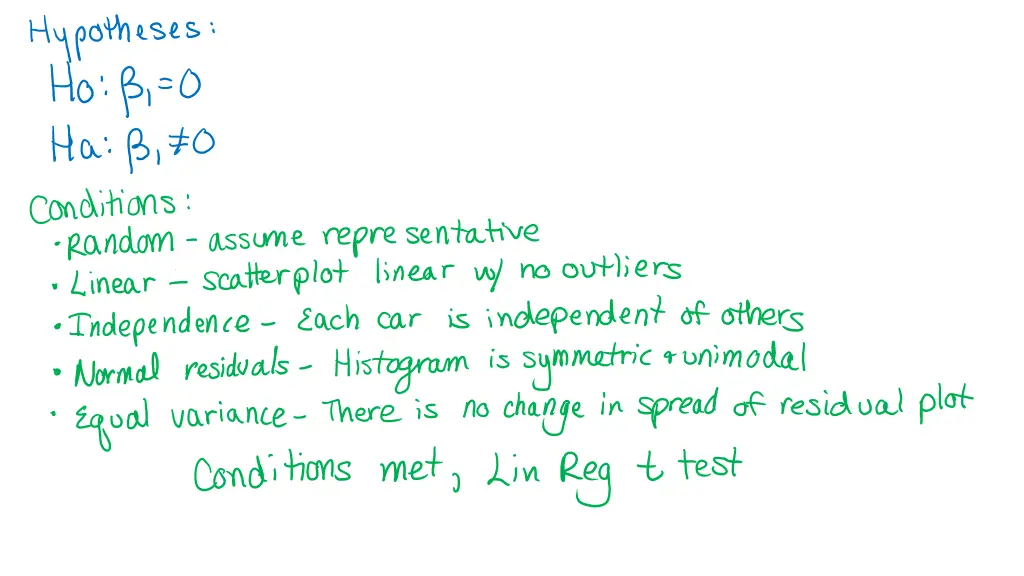 Hypotheses:
Ho: β₁=0
Ha: β₁≠0
Conditions:
• Random – assume representative
• Linear – scatterplot linear w/ no outliers
• Independence – Each car is independent of others
• Normal residuals – Histogram is symmetric + unimodal
• Equal variance – There is no change in spread of residual plot
Conditions met, Lin Reg t test